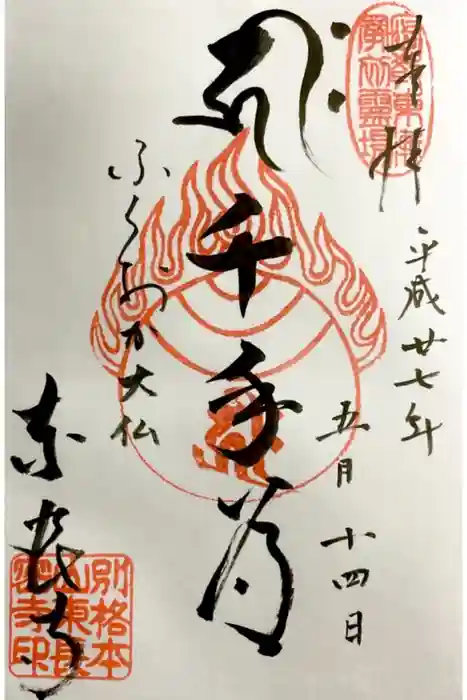 奉拝
平成廿七年
五月十四日
千手尊
ふくおか大仏
東長寺
別格本
山東長
密寺印